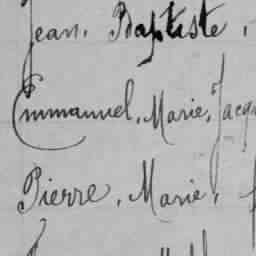 Jean. Baptiste,
Emmanuel, Marie, Jacq
Pierre, Marie,